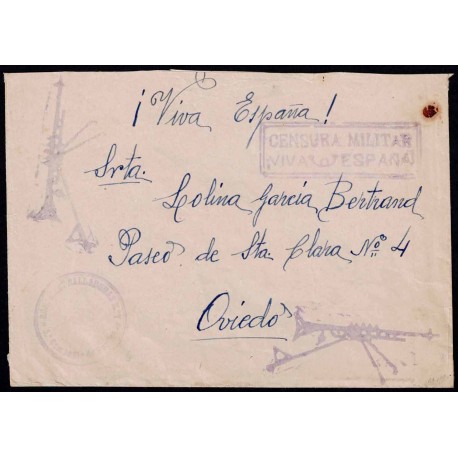 ¡Viva España!
CENSURA MILITAR
¡VIVA ESPAÑA!
Srta.
Lolina García Bertrand
Paseo de Sta. Clara Nº 4
Oviedo